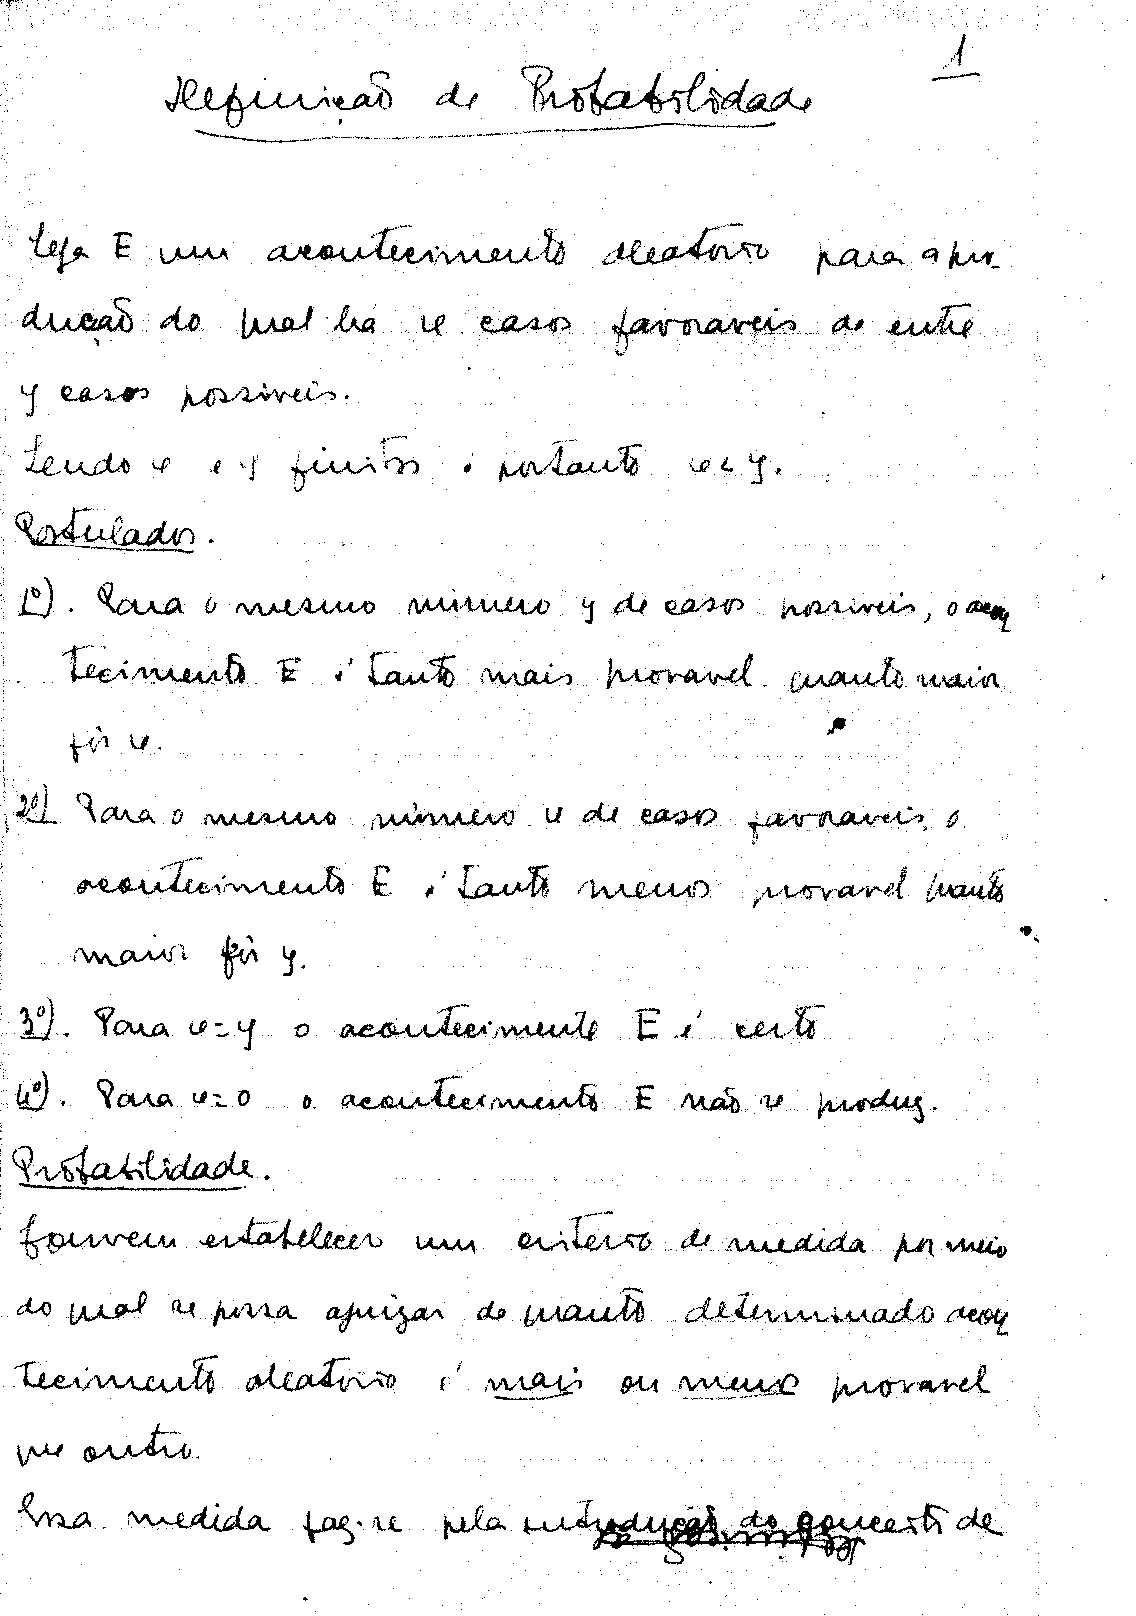 1
Definição de Probabilidade
Seja E um acontecimento aleatorio para a pro-
dução do qual ha φ casos favoraveis de entre
y casos possiveis.
Sendo φ e y finitos é portanto φ < y.
Postulados.
1º). Para o mesmo número y de casos possiveis, o acon
tecimento E é tanto mais provavel quanto maior
fôr φ.
2º) Para o mesmo número φ de casos favoraveis, o
acontecimento E é tanto menos provavel quanto
maior fôr y.
3º). Para φ = y o acontecimento E é certo
4º). Para φ = 0 o acontecimento E não se produz.
Probabilidade.
Convem estabelecer um criterio de medida por meio
do qual se possa ajuizar de quanto determinado acon
tecimento aleatorio é mais ou menos provavel
que outro.
Essa medida faz-se pela introdução do conceito de